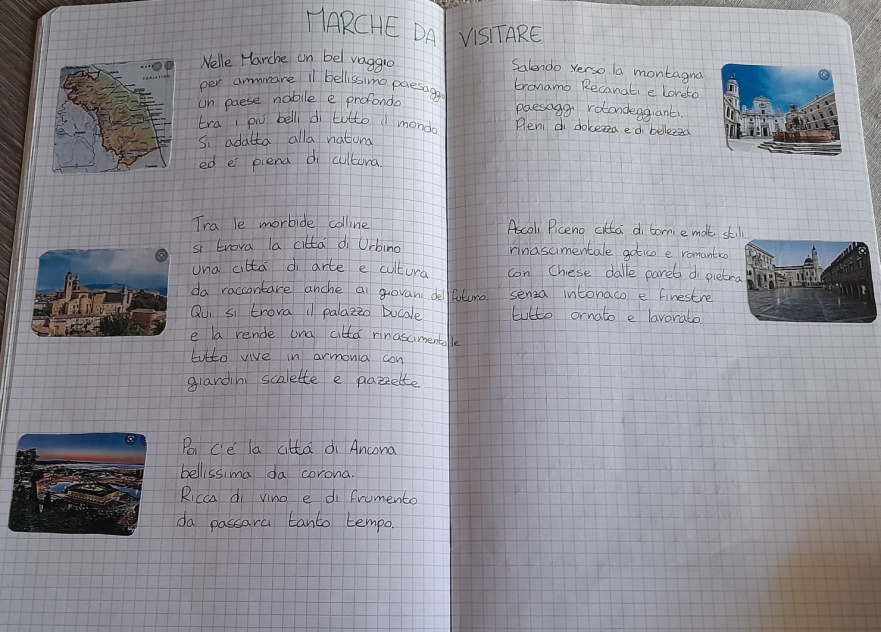 MARCHE DA VISITARE
Nelle Marche un bel viaggio
per ammirare il bellissimo paesaggio
un paese nobile e profondo
tra i piú belli di tutto il mondo.
Si adatta alla natura
ed é piena di cultura.
Tra le morbide colline
si trova la cittá di Urbino
una cittá di arte e cultura
da raccontare anche ai giovani del futuro.
Qui si trova il palazzo Ducale
e la rende una cittá rinascimentale
tutto vive in armonia con
giardini scalette e piazzette
Poi c'é la cittá di Ancona
bellissima da corona.
Ricca di vino e di frumento
da passarci tanto tempo.
Salendo verso la montagna
troviamo Recanati e Loreto
paesaggi rotondeggianti.
Pieni di dolcezza e di bellezza
Ascoli Piceno cittá di torri e molti stili
rinascimentale gotico e romantico
con Chiese dalle pareti di pietra
senza intonaco e finestre
tutto ornato e lavorato.